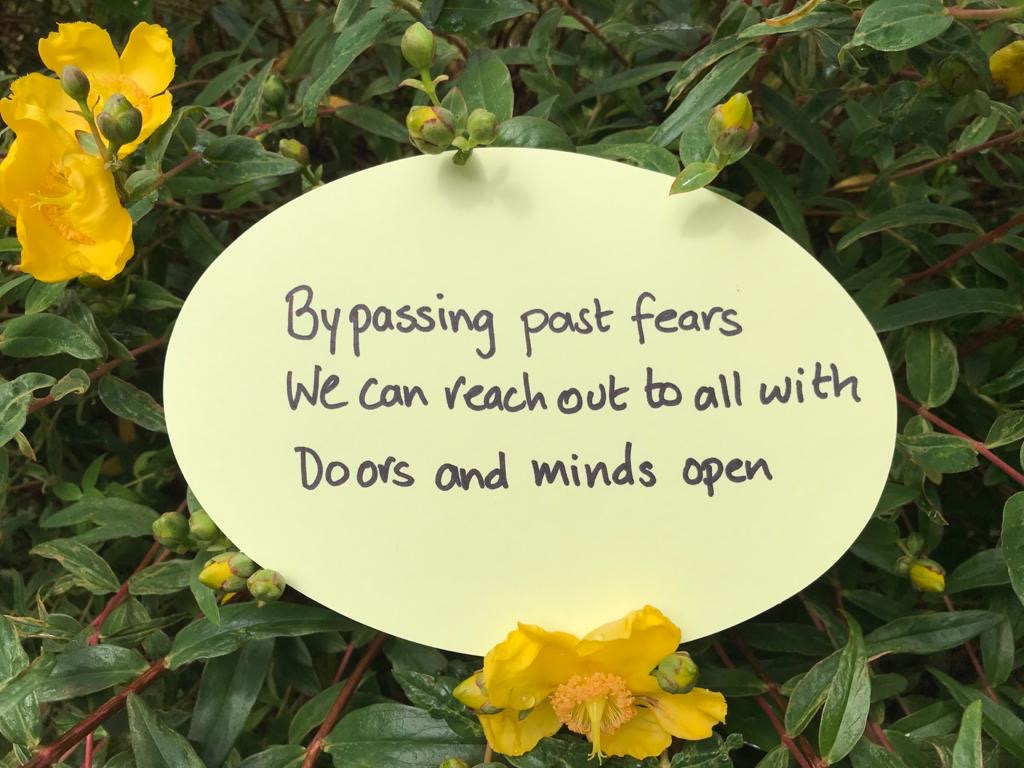 Bypassing past fears
We can reach out to all with
Doors and minds open